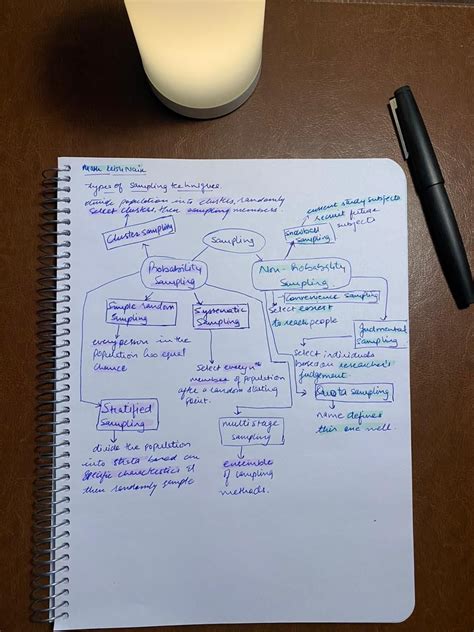 types of sampling techniques.
divide population into clusters, randomly
select clusters, then sampling members.
current study subjects
recruit future
subjects
Cluster Sampling
Sampling
Snowball
Sampling
Probability
Sampling
Non-Probability
Sampling
Convenience Sampling
Simple random
Sampling
Systematic
Sampling
select
to reach people
Judgmental
Sampling
every person in the
population has equal
chance
Select every nth
member of population
after a random starting
point.
select individuals
based on researcher's
judgement
Quota Sampling
Stratified
Sampling
multistage
sampling
name defines
this one well.
divide the population
into strata based on
specific characteristics &
then randomly sample
ensemble
of sampling
methods.